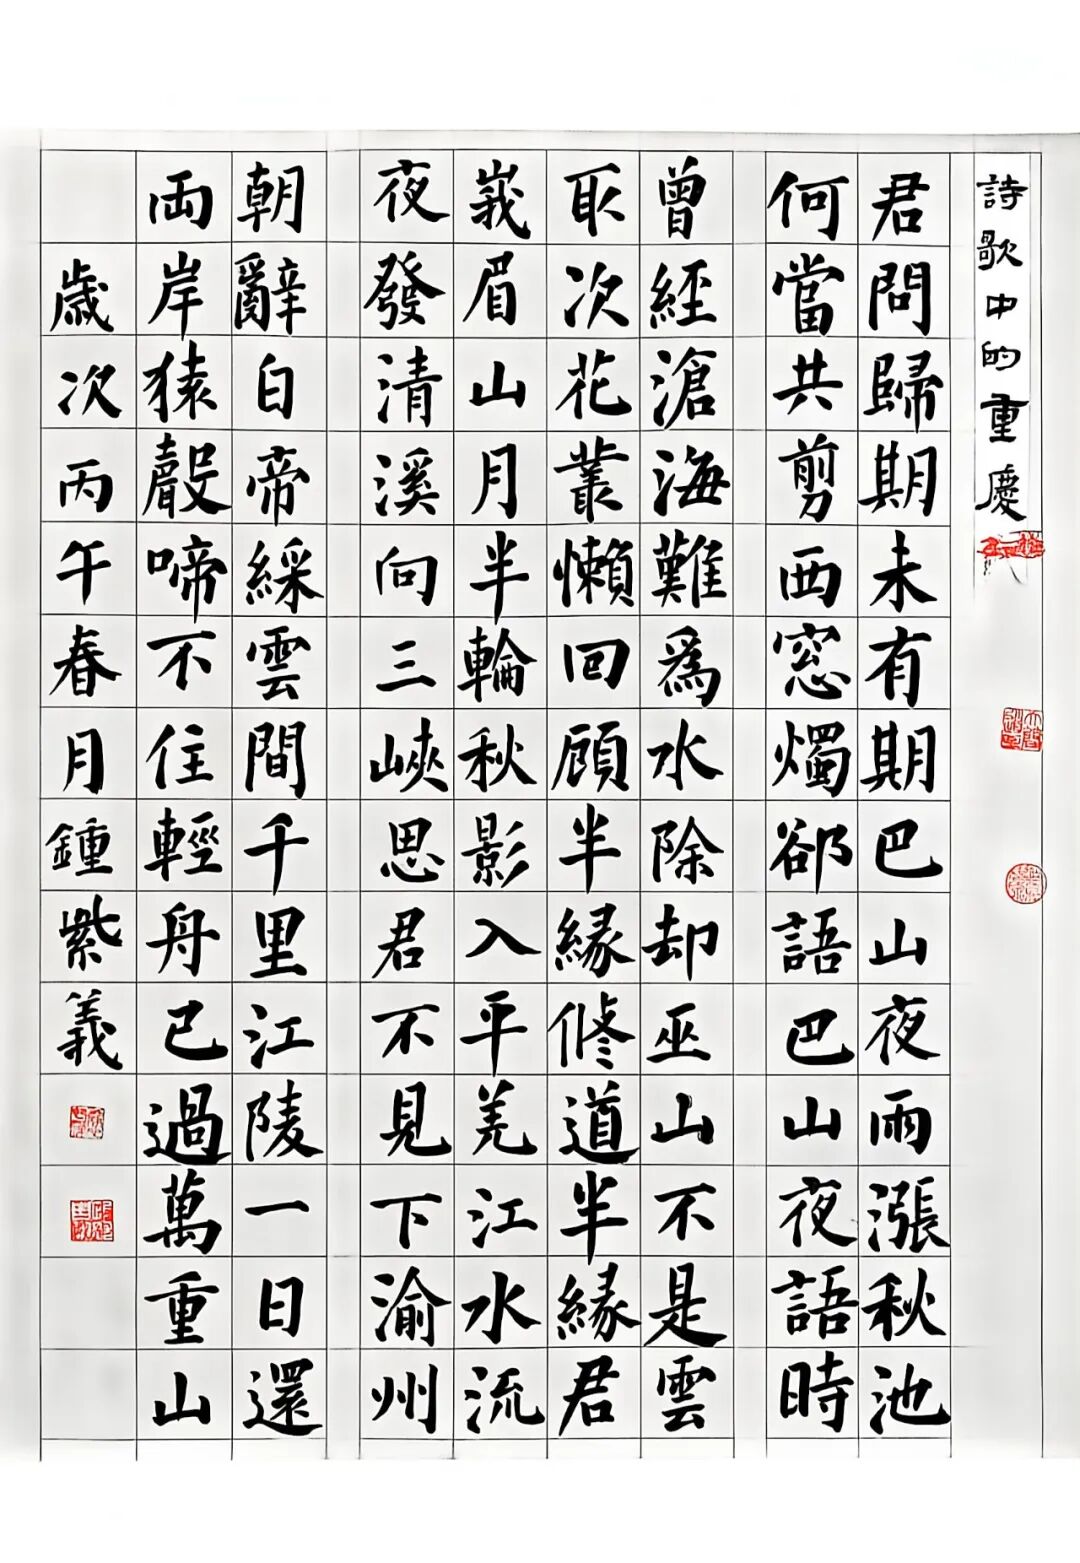 詩歌中的重慶
君問歸期未有期巴山夜雨漲秋池
何當共剪西窓燭郤語巴山夜語時
曾經滄海難爲水除却巫山不是雲
取次花叢懶回顧半緣修道半緣君
峩眉山月半輪秋影入平羌江水流
夜發清溪向三峽思君不見下渝州
朝辭白帝綵雲間千里江陵一日還
兩岸猿聲啼不住輕舟已過萬重山
歲次丙午春月鍾紫義